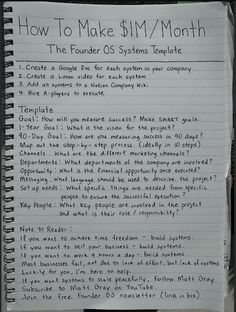 How To Make $1M/Month
The Founder OS Systems Template
1. Create a Google Doc for each system in your company
2. Create a Loom video for each system
3. Add all systems to a Notion Company Wiki
4. Hire A-players to execute
Template
Goal: How will you measure success? Make SMART goals.
1-Year Goal: What is the vision for the project?
90-Day Goal: How are you measuring success in 90 days?
Map out the step-by-step process (ideally in 10 steps)
Channels: What are the different marketing channels?
Departments: What departments of the company are involved?
Opportunity: What is the financial opportunity once executed?
Messaging: What language should we used to describe the project?
Set up needs: What specific things are needed from specific
people to ensure the successful execution?
Key People: What key people are involved in the project
and what is their role/responsibility?
Note to Reader:
If you want to achieve time freedom - build systems.
If you want to sell your business - build systems.
If you want to work 4 hours a day - build systems.
Most businesses fail, not due to lack of effort, but lack of systems
Luckily for you, I'm here to help.
If you want systems to scale peacefully, Follow Matt Gray
Subscribe to Matt Gray on YouTube.
Join the free Founder OS newsletter (link in bio)